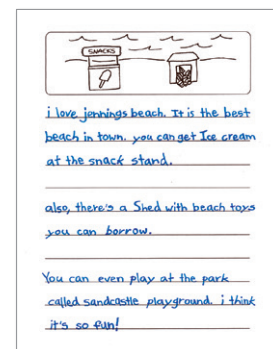 SNACKS
i love jennings beach. It is the best
beach in town. you can get Ice cream
at the snack stand.
also, there's a Shed with beach toys
you can borrow.
You can even play at the park
called sandcastle playground. i think
it's so fun!